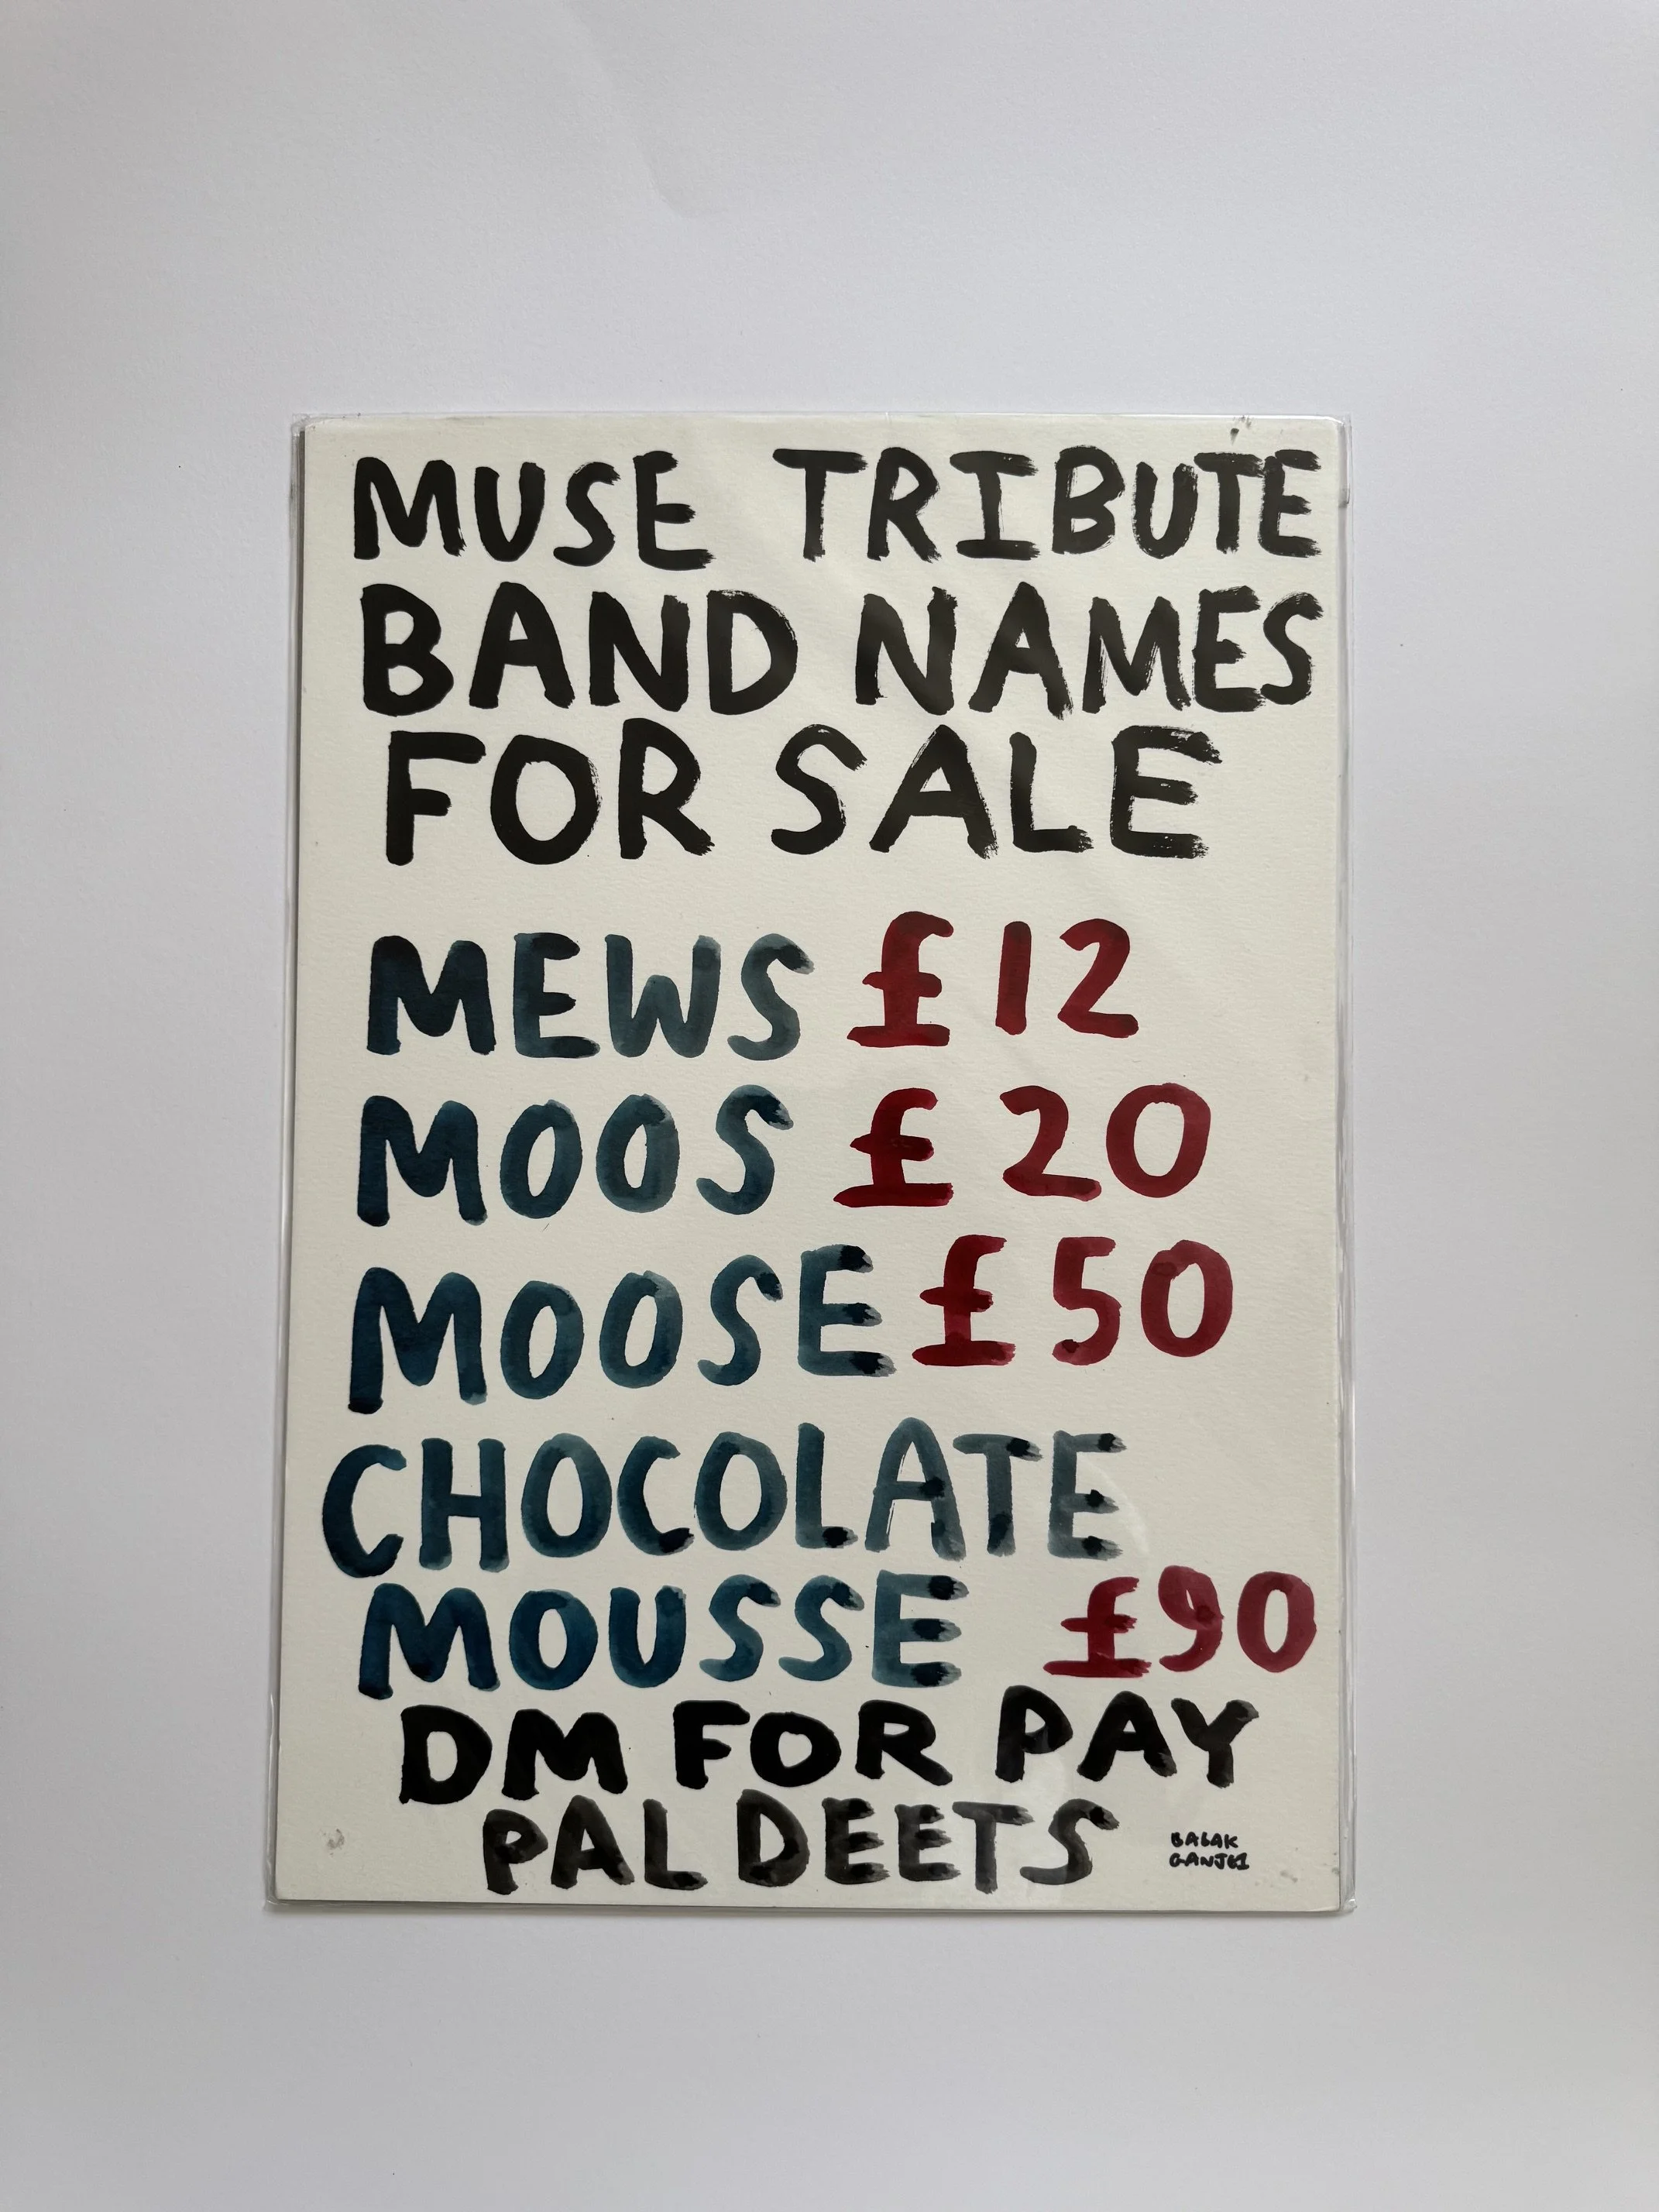 MUSE TRIBUTE
BAND NAMES
FOR SALE
MEWS £12
MOOS £20
MOOSE £50
CHOCOLATE
MOUSSE £90
DM FOR PAY
PAL DEETS
BABAK
GANJEI